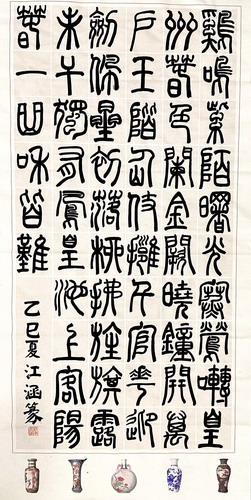 雞鳴紫陌曙光寒鶯囀皇
州春色闌金闕曉鐘開萬
戶玉階仙仗擁千官花迎
劍佩星初落柳拂旌旗露
未干獨有鳳皇池上客陽
春一曲和皆難
乙巳夏江涵篆